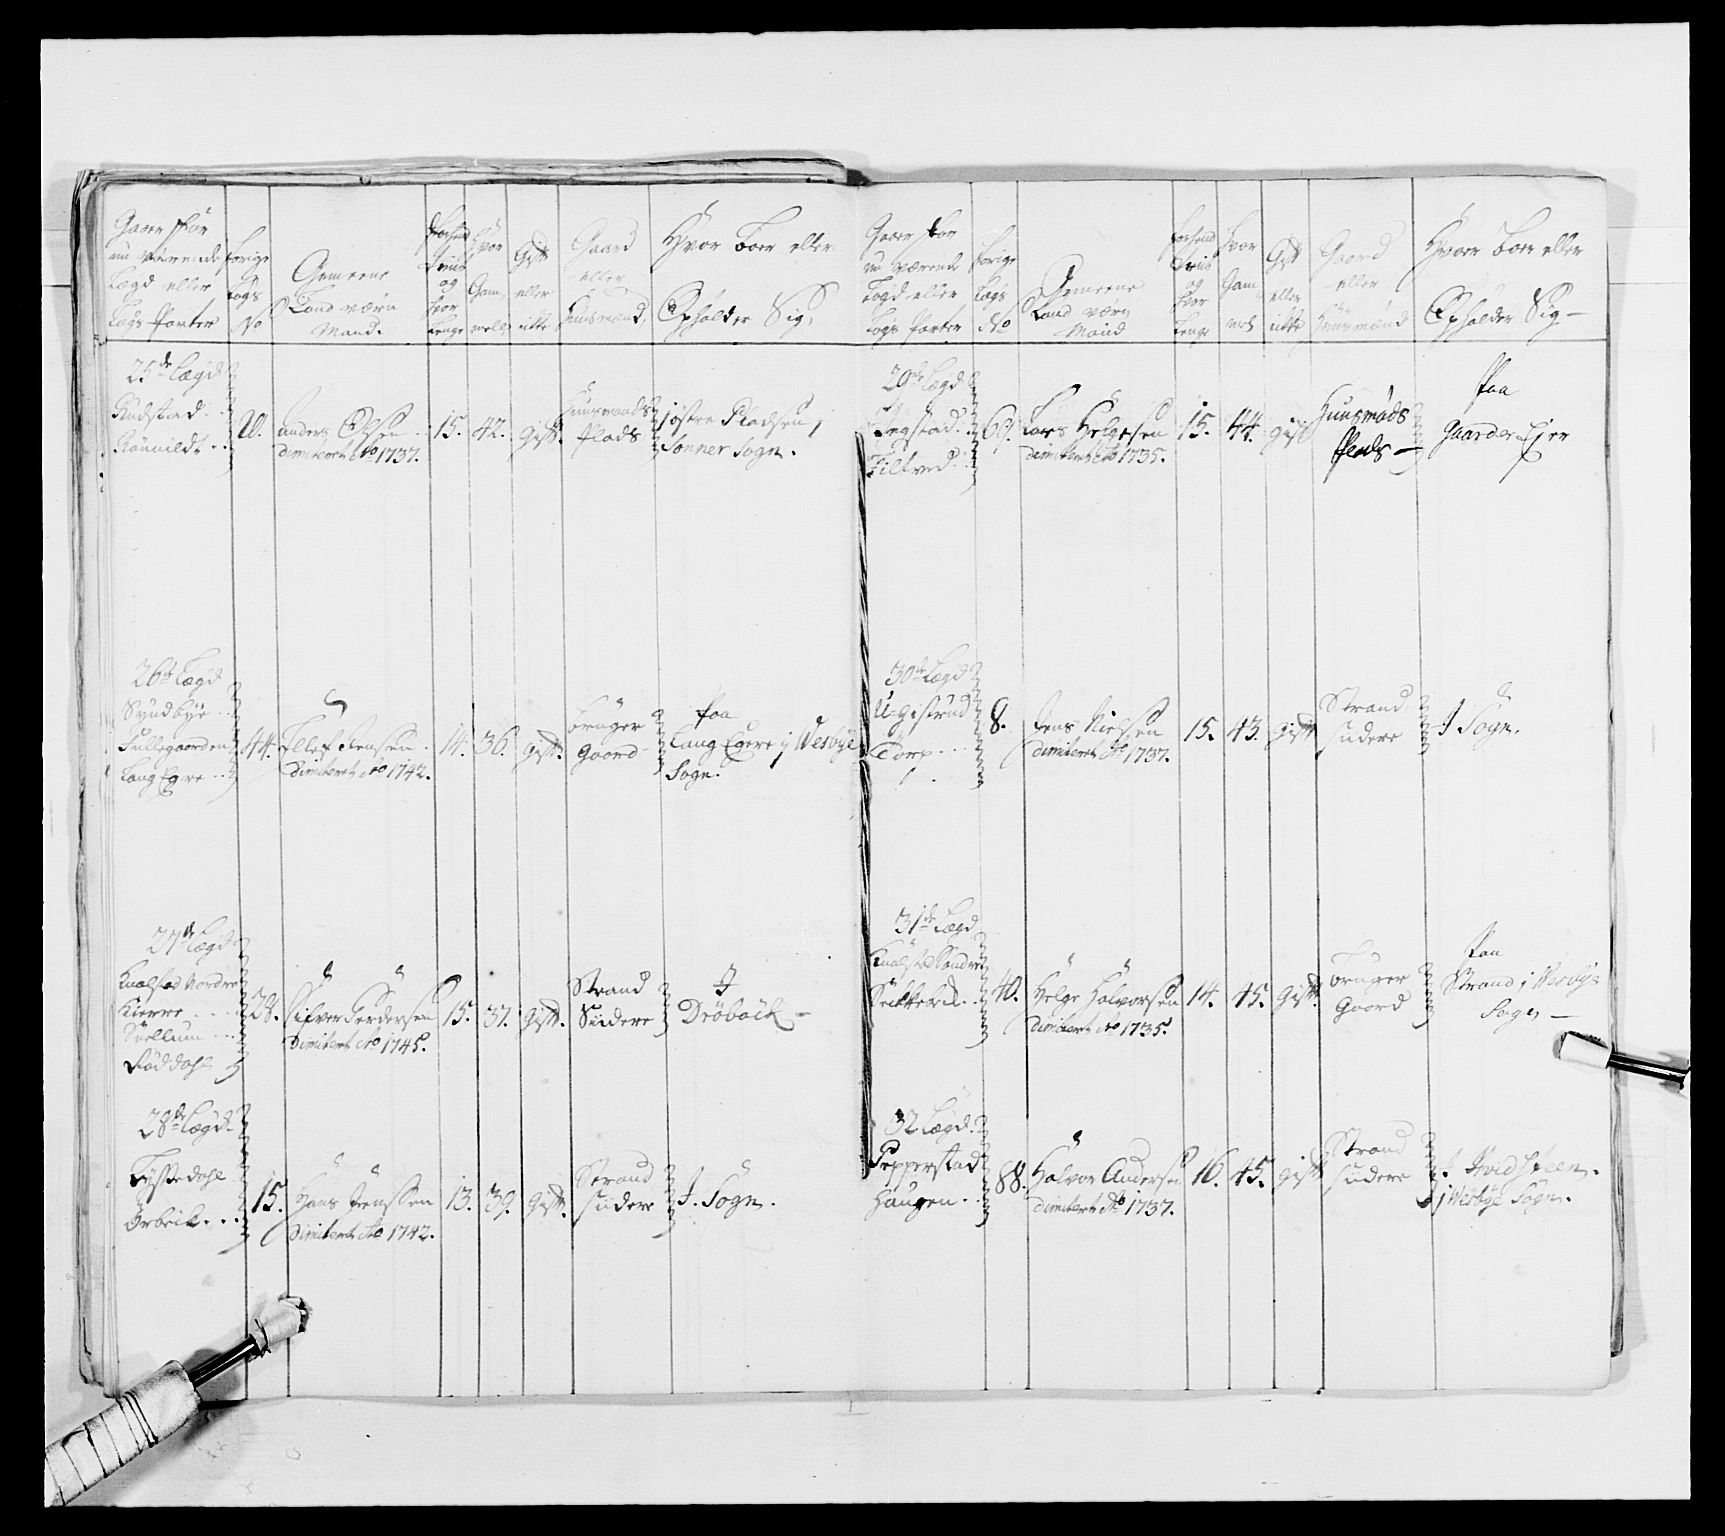 Gaver for
nu værende
Lægd eller
Lægs Parter
forige
Lægs
No
Gemeene
Land værn
Mand.
forhend
Tient
og
hvor
Lenge
Hvor
Gam-
mell
Gift
eller
ikke
Gaard
eller
Huusmænd
Hvor boer eller
Opholder Sig,
25de Lægd
Rudstad
20.
anders Olsen
dimitert Ao 1737.
15.
42.
gift.
Huusmands
Plads
j østre Pladsen j
Sonner Sogn.
26de Lægd
Syndbye
Fullegaarden
Lang Egre
44.
Ellef Jensen
dimitert Ao 1742.
14.
36.
gift.
bruger
gaard
Paa
Lang Egere j Wesbye
Sogn.
27de Lægd
Knalstad Nordre
Kierre
Süellum
Røddahl
24.
Sifver Perdersen
dimitert Ao 1745.
15.
37.
gift.
Strand
Sidere
I
Drøback
28de Lægd
Ørbeck
15.
Hans Jenssen
dimitert Ao 1742.
13.
39.
gift.
Strand
sidere
I. Sogn.
Gaver for
nu værende
Lægd eller
Lægs Parter
forige
Lægs
No
Gemeene
Land værn
Mand
forhend
Tient
og
hvor
Lenge
Hvor
Gam-
mel
Gift
eller
ikke
Gaard
eller
Huusmænd
Hvor boer eller
Opholder Sig
29de Lægd
Tegstad
Filtved
69.
Lars Helgesen
dimitert Ao 1735.
15.
44.
gift
Huusmads
Plads
Paa
gaarder Ejer
30de Lægd
Ugistrud
Torp
8.
Jens Nielsen
dimitert Ao 1737.
15.
43.
gift
Strand
sidere
I Sogn.
31de Lægd
Knalstad Søndre
40.
Helge Halvorsen
dimitert Ao 1735.
14.
45.
gift.
bruger
Gaard
Paa
Strand j Wesbye
Sogn
32 Lægd.
Pepperstad
Haugen
88.
Halvor Andersen
dimitert Ao 1737.
16.
45.
gift
Strand
sidere
I Hvidsteen.
j Wesbye Sogn.